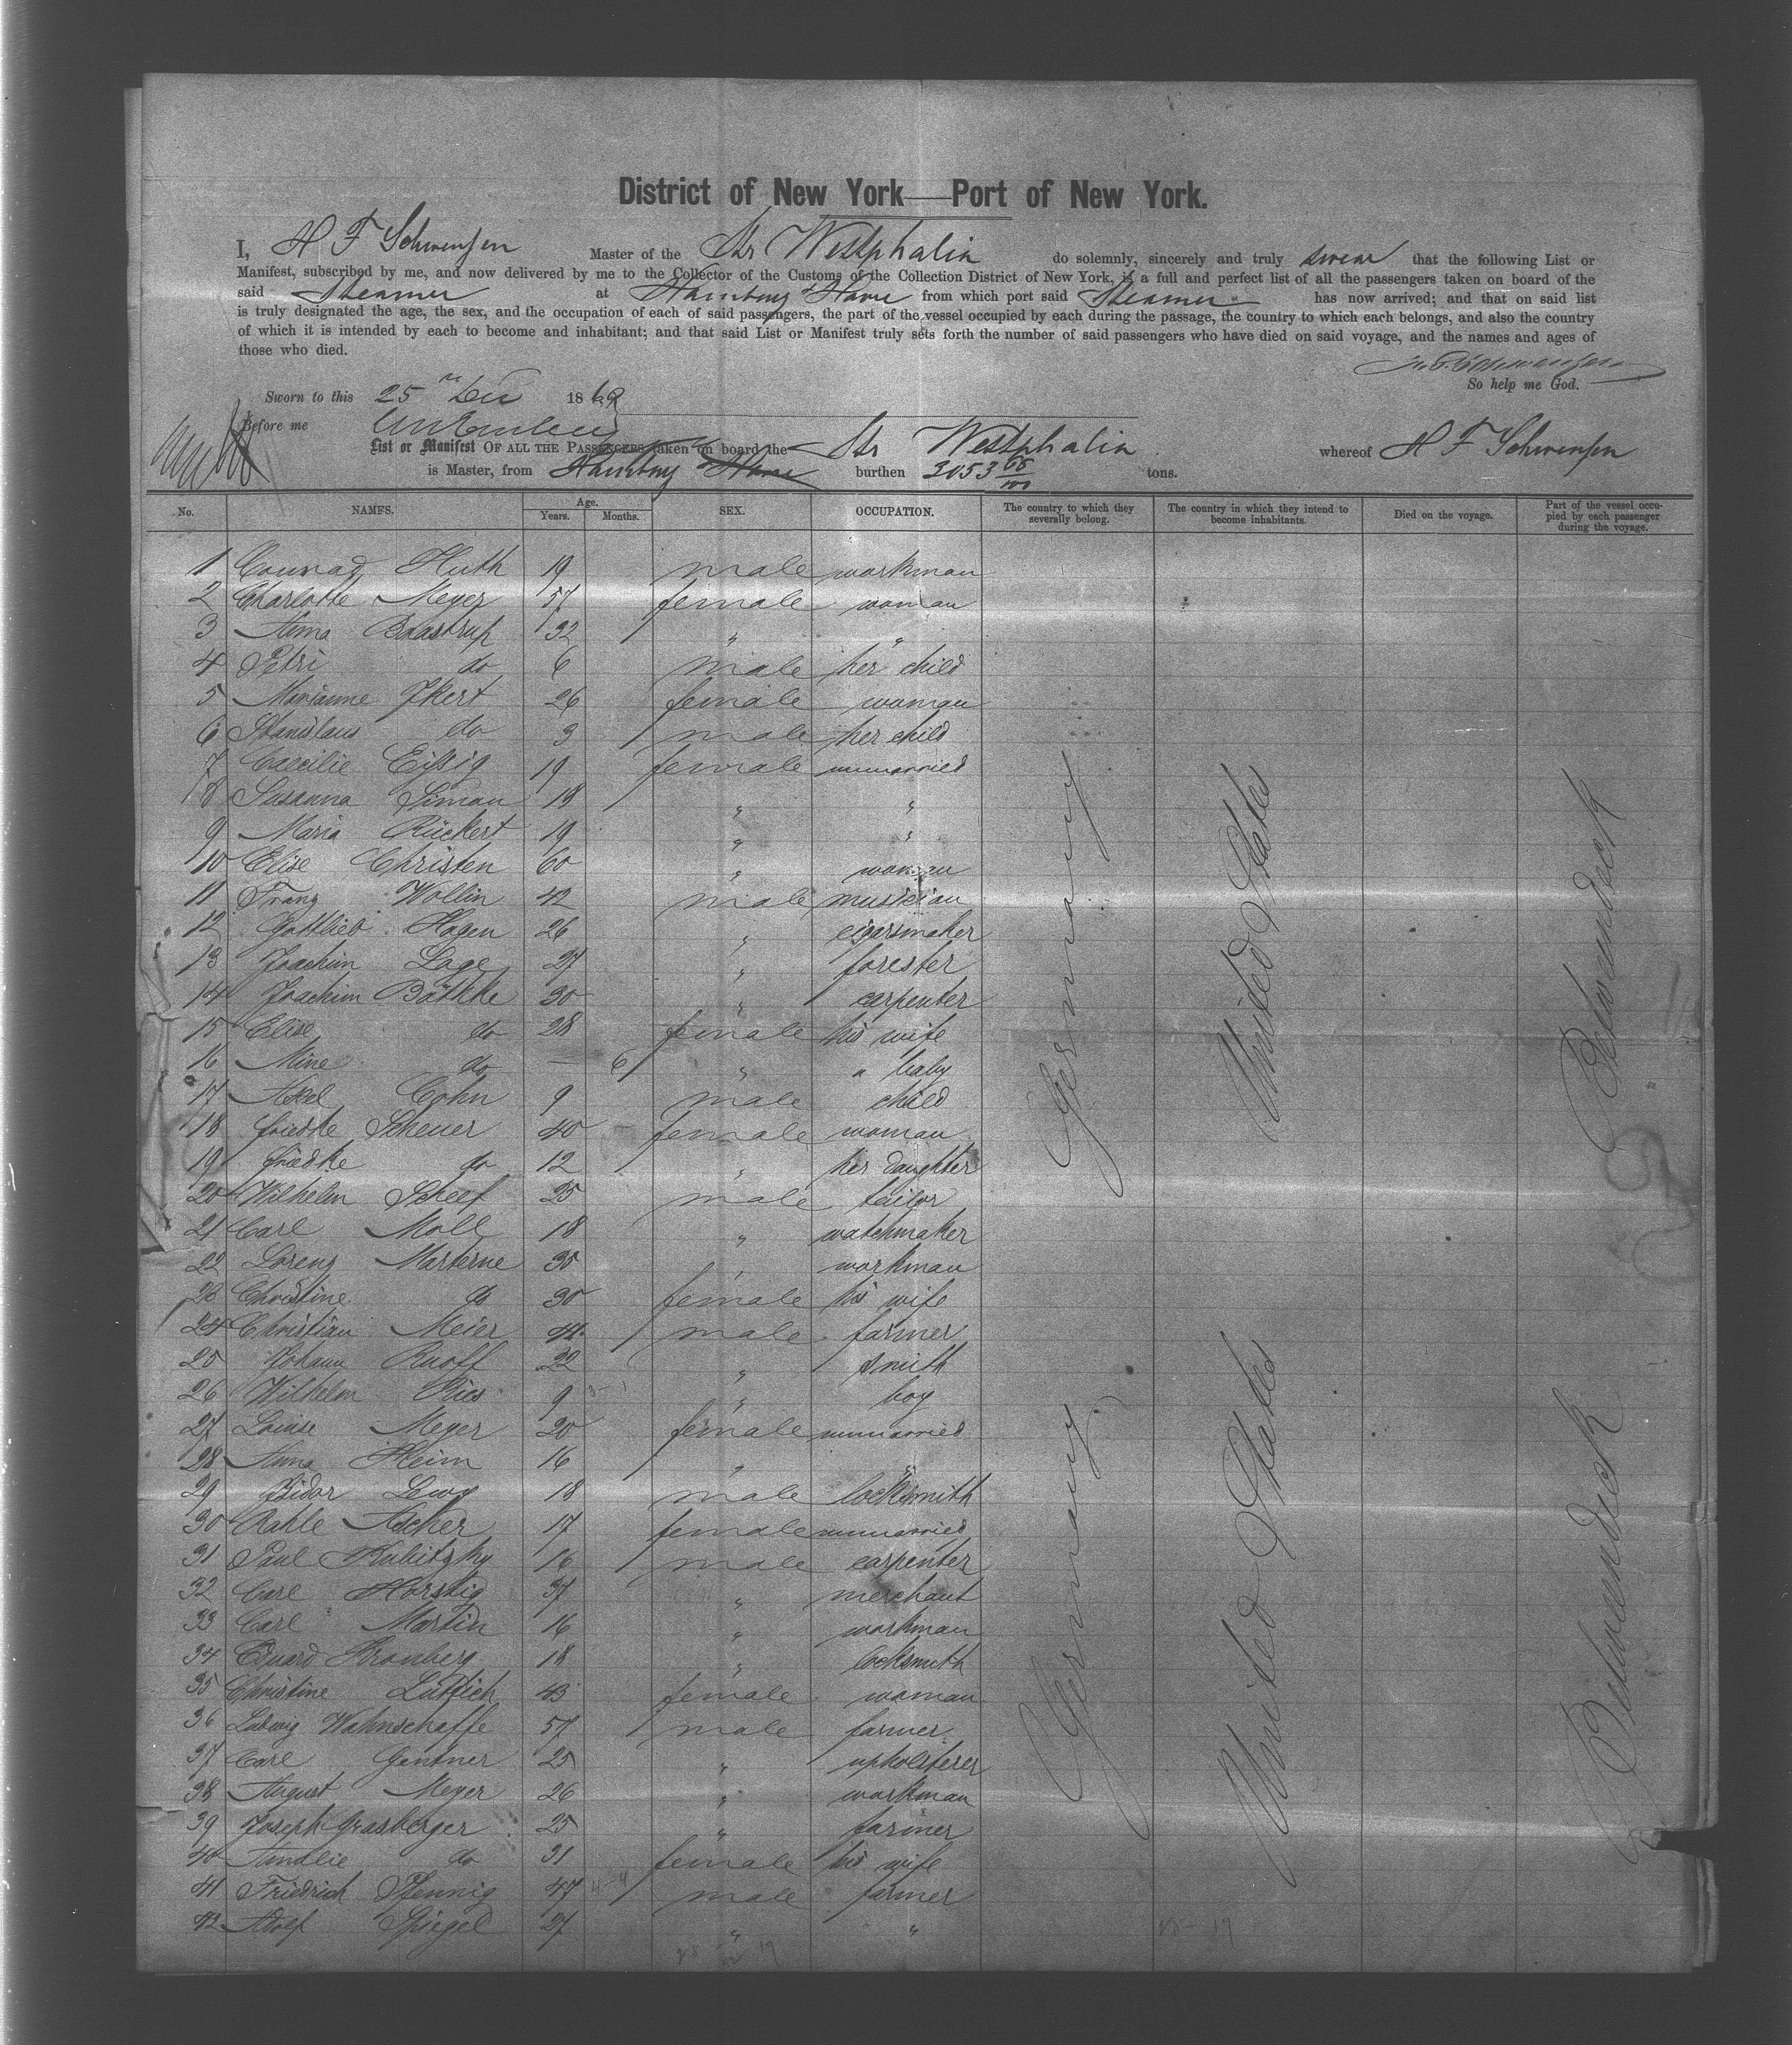 District of New York—Port of New York.
I, H F Schwensen Master of the Str Westphalia do solemnly, sincerely and truly swear that the following List or
Manifest, subscribed by me, and now delivered by me to the Collector of the Customs of the Collection District of New York, is a full and perfect list of all the passengers taken on board of the
said Steamer at Hamburg & Havre from which port said Steamer has now arrived; and that on said list
is truly designated the age, the sex, and the occupation of each of said passengers, the part of the vessel occupied by each during the passage, the country to which each belongs, and also the country
of which it is intended by each to become and inhabitant; and that said List or Manifest truly sets forth the number of said passengers who have died on said voyage, and the names and ages of
those who died.
H. F. Schwensen
So help me God.
Sworn to this 25 Dec 1869
Before me
List or Manifest OF ALL THE PASSENGERS taken on board the Str Westphalia whereof H F Schwensen
is Master, from Hamburg & Havre burthen 3053 68/100 tons.
No. NAMES. Age. Years. Months. SEX. OCCUPATION. The country to which they severally belong. The country in which they intend to become inhabitants. Died on the voyage. Part of the vessel occupied by each passenger during the voyage.
1 Conrad Huth 19 male workman
2 Charlotte Meyer 57 female woman
3 Anna Baastrup 32 " "
4 Petri do 6 male her child
5 Marianne Ikert 26 female woman
6 Stanislaus do 3 male her child
7 Caecilie Eißig 19 female unmarried
8 Susanna Siman 18 " "
9 Maria Rückert 19 " "
10 Elise Christen 60 " woman
11 Franz Wollin 42 male musician
12 Gottlieb Hagen 26 " cigarsmaker
13 Joachim Lage 27 " forester
14 Joachim Bäthke 30 " carpenter
15 Elise do 28 female his wife
16 Mine do — 6 " " baby
17 Axel Cohn 9 male child
18 Friedke Scheuer 40 female woman
19 Friedke do 12 " her daughter
20 Wilhelm Scheef 25 male tailor
21 Carl Moll 18 " watchmaker
22 Lorenz Marterne 35 " workman
23 Christine do 30 female his wife
24 Christian Meier 41 male farmer
25 Johann Knoff 22 " smith
26 Wilhelm Ries 9 " boy
27 Louise Meyer 20 female unmarried
28 Anna Heim 16 " "
29 Isidor Lewy 18 male locksmith
30 Rahle Ascher 17 female unmarried
31 Paul Kubitzky 16 male carpenter
32 Carl Horstig 37 " merchant
33 Carl Martin 16 " workman
34 Eduard Kronberg 18 " locksmith
35 Christine Lüttich 43 female woman
36 Ludwig Wahnschaffe 57 male farmer
37 Carl Gentner 25 " upholsterer
38 August Meyer 26 " workman
39 Joseph Grasberger 25 " farmer
40 Amalie do 31 female his wife
41 Friedrich Pfennig 47 male farmer
42 Adolf Spiegel 27 " "
Germany
United States
Betweendeck
Germany
United States
Betweendeck